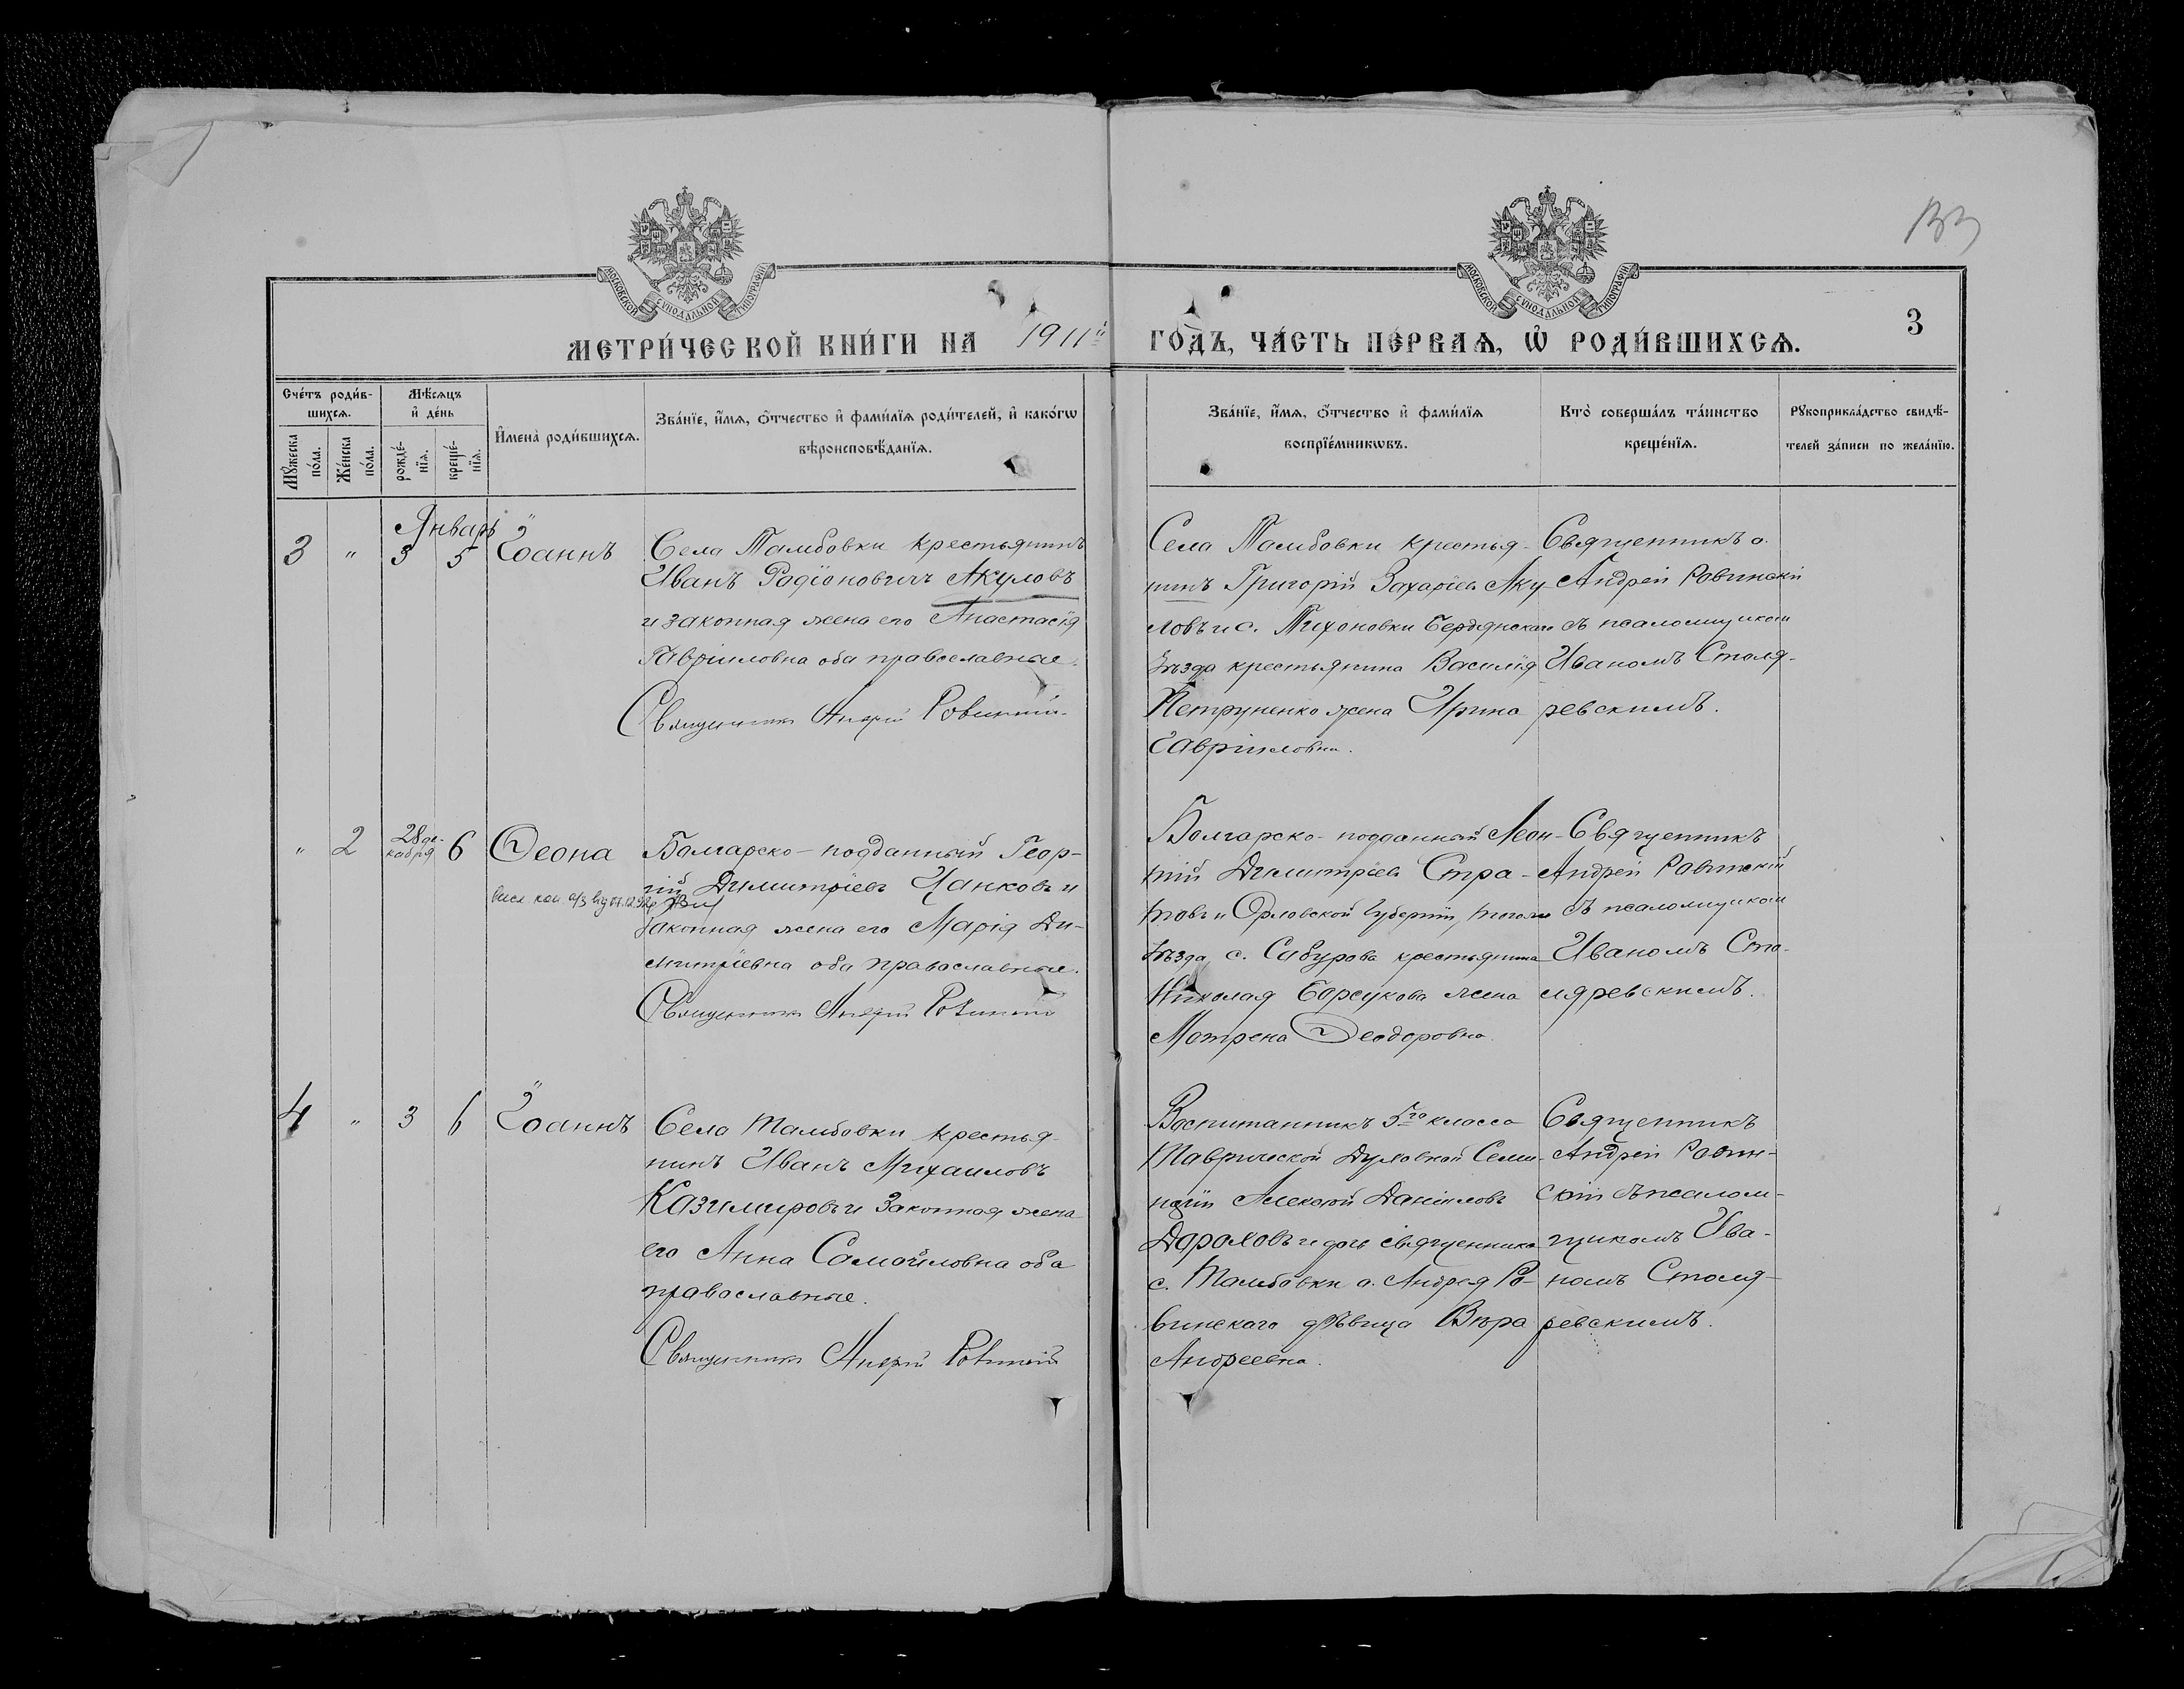 133
МОСКОВСКОЙ СѴНОДАЛЬНОЙ ТИПОГРАФІИ
МОСКОВСКОЙ СѴНОДАЛЬНОЙ ТИПОГРАФІИ
МЕТРИ́ЧЕСКОЙ КНИ́ГИ НА 1911й ГО́ДЪ, ЧА́СТЬ ПЕ́РВАѦ, Ѡ҆ РОДИ́ВШИХСѦ. 3
Сче́тъ роди́в-
шихсѧ.
Мꙋ́жеска
по́ла.
Же́нска
по́ла.
Мѣ́сѧцъ
и҆ де́нь
рожде́-
нїѧ.
креще́-
нїѧ.
И҆мена̀ роди́вшихсѧ.
Зва́нїе, и҆́мѧ, ѻ҆́тчество и҆ фами́лїѧ роди́телей, и҆ како́гѡ
вѣроисповѣ́данїѧ.
Зва́нїе, и҆́мѧ, ѻ҆́тчество и҆ фами́лїѧ
воспрїе́мникѡвъ.
Кто̀ соверша́лъ та́инство
креще́нїѧ.
Рꙋкоприкла́дство свидѣ́-
телей за́писи по жела́нїю.
Январь
3 " 3 5 Іоаннъ
Села Тамбовки крестьянинъ
Иванъ Родіоновичъ Акуловъ
и законная жена его Анастасія
Гавріиловна оба православные.
Священникъ Андрей Ровинскій
Села Тамбовки крестья-
нинъ Григорій Захаріевъ Аку
ловъ и с. Тихоновки Бердянскаго
уѣзда крестьянина Василія
Петруненко жена Ирина
Гавріиловна.
Священникъ о.
Андрей Ровинскій
съ псаломщикомъ
Иваномъ Столя-
ревскимъ.
" 2 28 де-
кабря 6 Ѳеона
Болгарско-подданный Геор-
гій Димитріевъ Цанковъ и
законная жена его Марія Ди-
митріевна оба православные.
Священникъ Андрей Ровинскій
Болгарско-подданный Леон-
тій Димитріевъ Стра-
товъ и Орловской Губерніи,
уѣзда, с. Сабурова крестьянина
Николая Борсукова жена
Матрена Ѳеодоровна.
Священникъ
Андрей Ровинскій
съ псаломщикомъ
Иваномъ Сто-
ляревскимъ.
4 " 3 6 Іоаннъ
Села Тамбовки крестья-
нинъ Иванъ Михаиловъ
Казимировъ и законная жена
его Анна Самойловна оба
православные.
Священникъ Андрей Ровинскій
Воспитанникъ 5го класса
Таврической Духовной Семи-
наріи Алексѣй Даніиловъ
Дороховъ и дочь священника
с. Тамбовки о. Андрея Ро-
винскаго дѣвица Вѣра
Андреевна.
Священникъ
Андрей Ровин-
скій съ псалом-
щикомъ Ива-
номъ Столя-
ревскимъ.